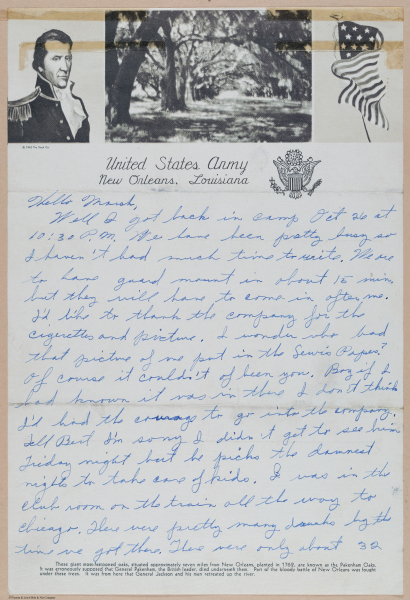 United States Army
New Orleans, Louisiana
Hello Marsh,
Well I got back in camp Oct 26 at
10:30 P.M. We have been pretty busy so
I haven't had much time to write. We are
to have guard mount in about 15 min
but they will have to come in after me.
I'd like to thank the company for the
cigarettes and picture. I wonder who had
that picture of me put in the Papes?
Of course it couldn't of been you. Boy if I
had known it was in there I don't think
I'd had the courage to go into the company.
Tell Bert I'm sorry I didn't get to see him
Friday night but he picks the damnest
nights to take care of kids. I was in the
club room on the train all the way to
Chicago. There were pretty many drunks by the
time we got there. There were only about 32
These giant moss-festooned oaks, situated approximately seven miles from New Orleans, planted in 1783, are known as the Pakenham Oaks.
It was erroneously supposed that General Pakenham, the British leader, died underneath them. Part of the bloody battle of New Orleans was fought
under these trees. It was from here that General Jackson and his men retreated up the river.